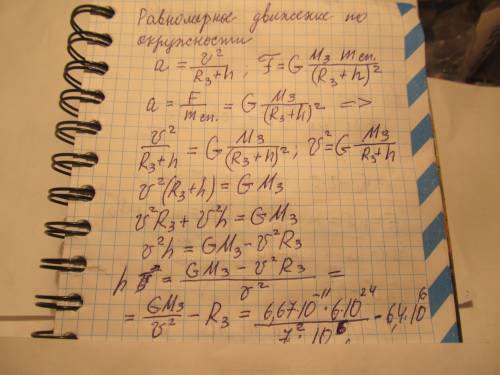 Равномерные движение по
окружности
a = v²/(R₃+h), F = G M₃ m сп./(R₃+h)²
a = F/m сп. = G M₃/(R₃+h)² =>
v²/(R₃+h) = G M₃/(R₃+h)², v² = G M₃/(R₃+h)
v²(R₃+h) = GM₃
v²R₃ + v²h = GM₃
v²h = GM₃ − v²R₃
h = (GM₃ − v²R₃)/v² =
= GM₃/v² − R₃ = (6,67·10⁻¹¹·6·10²⁴)/(7²·10⁶) − 6,4·10⁶